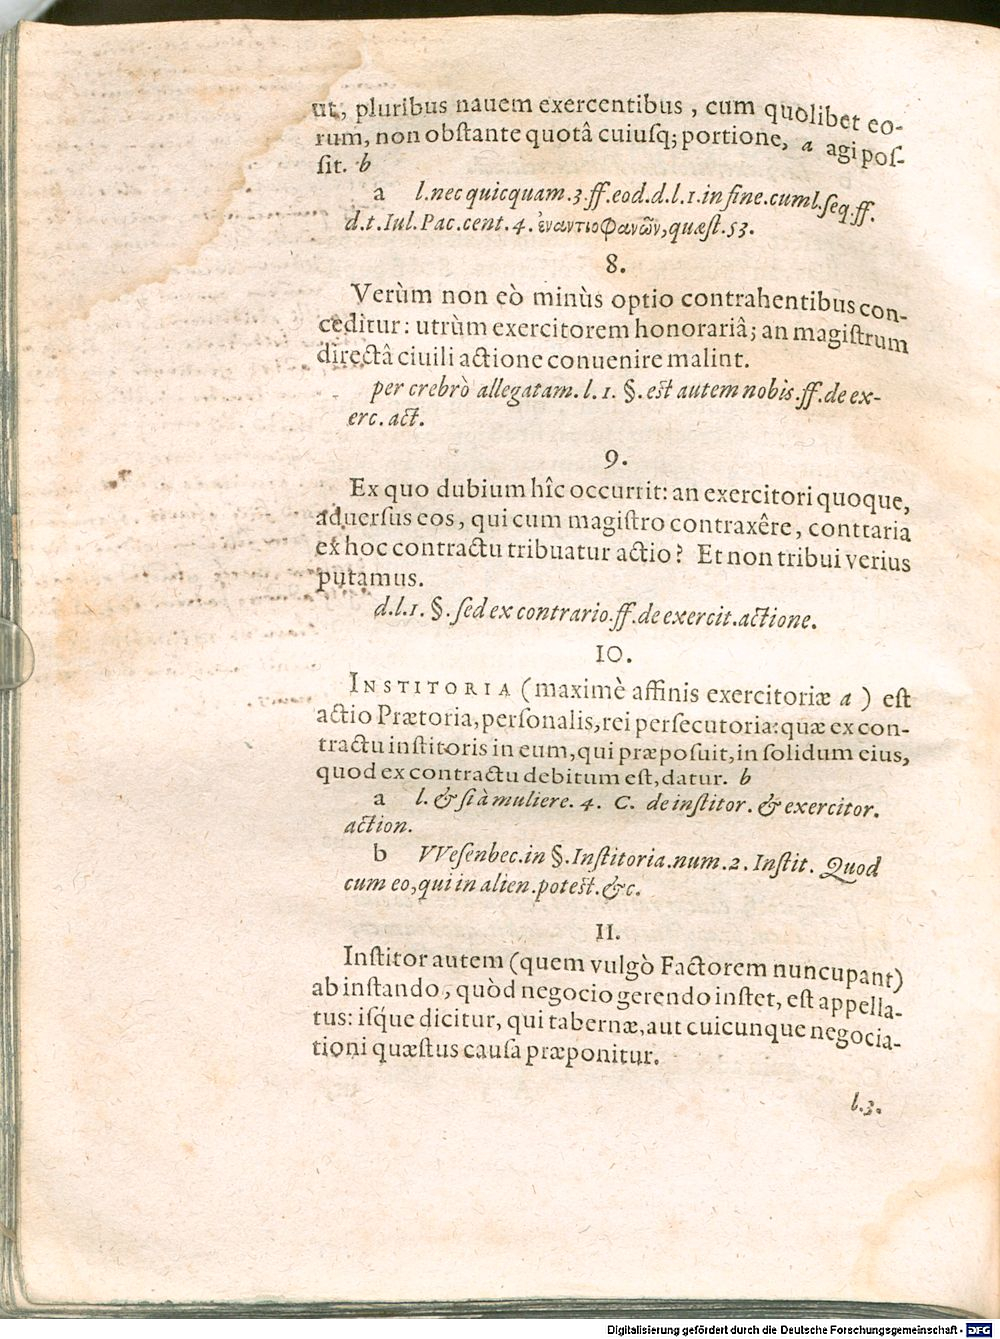 ut, pluribus nauem exercentibus, cum quolibet eo-
rum, non obſtante quotâ cuiuſq; portione, a agi poſ-
ſit. b
a l. nec quicquam. 3. ff. eod. d. l. 1. in fine. cum l. ſeq. ff.
d. t. Iul. Pac. cent. 4. ἐναντιοφανῶν, quæſt. 53.
8.
Verùm non eò minùs optio contrahentibus con-
ceditur: utrùm exercitorem honorariâ; an magiſtrum
directâ ciuili actione conuenire malint.
per crebrò allegatam. l. 1. §. eſt autem nobis. ff. de ex-
erc. act.
9.
Ex quo dubium hîc occurrit: an exercitori quoque,
aduerſus eos, qui cum magiſtro contraxêre, conttaria
ex hoc contractu tribuatur actio? Et non tribui verius
putamus.
d. l. 1. §. ſed ex contrario. ff. de exercit. actione.
10.
INSTITORIA (maximè affinis exercitoriæ a) eſt
actio Prætoria, perſonalis, rei perſecutoria: quæ ex con-
tractu inſtitoris in eum, qui præpoſuit, in ſolidum eius,
quod ex contractu debitum eſt, datur. b
a l. & ſi à muliere. 4. C. de inſtitor. & exercitor.
action.
b VVeſenbec. in §. Inſtitoria. num. 2. Inſtit. Quod
cum eo, qui in alien. poteſt. &c.
11.
Inſtitor autem (quem vulgò Factorem nuncupant)
ab inſtando, quòd negocio gerendo inſtet, eſt appella-
tus: iſq́ue dicitur, qui tabernæ, aut cuicunque negocia-
tioni quæſtus cauſa præponitur.
l. 3.
Digitalisierung gefördert durch die Deutsche Forschungsgemeinschaft - DFG